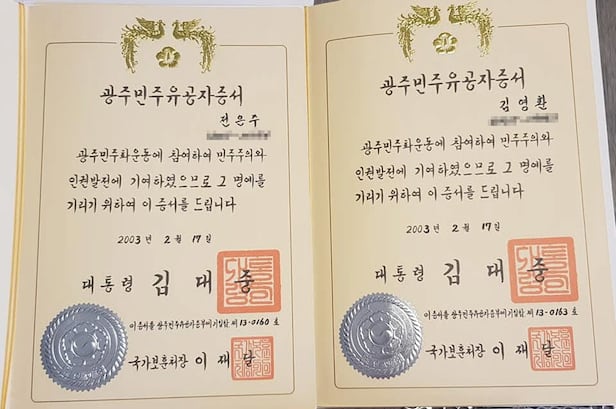 광주민주유공자증서
전은주
광주민주화운동에 참여하여 민주주의와
인권발전에 기여하였으므로 그 명예를
기리기 위하여 이 증서를 드립니다
2003년 2월 17일
대통령 김대중
이 증서를 광주민주유공자증부에 기입함 제 13-0160 호
국가보훈처장 이재달
광주민주유공자증서
김영환
광주민주화운동에 참여하여 민주주의와
인권발전에 기여하였으므로 그 명예를
기리기 위하여 이 증서를 드립니다
2003년 2월 17일
대통령 김대중
이 증서를 광주민주유공자증부에 기입함 제 13-0163 호
국가보훈처장 이재달